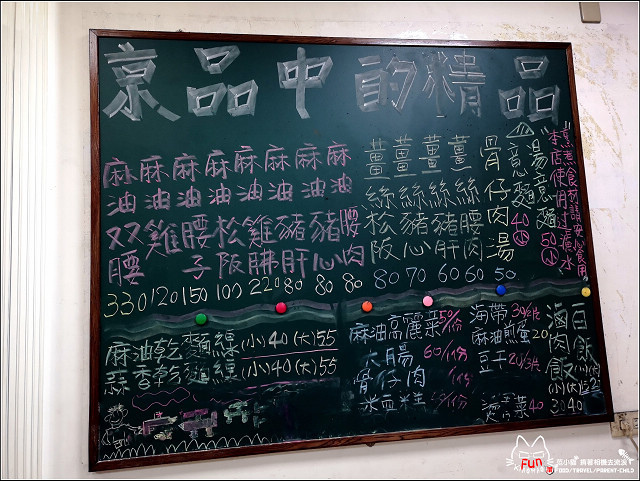 京品中的精品
麻油双腰 330
麻油雞 120
麻油腰子 150
麻油松阪 100
麻油雞腓 220
麻油豬肝 80
麻油豬心 80
麻油腰肉 80
薑絲松阪 80
薑絲豬心 70
薑絲豬肝 60
薑絲腰肉 60
骨仔肉湯 50
意麵 40
湯意麵 50
本店使用过濾水
烹煮食材請安心食用
麻油乾麵線 (小)40 (大)55
蒜香乾麵線 (小)40 (大)55
麻油高麗菜 50/份
大腸 60/份
骨仔肉 /份
米血糕 /份
海帶 30/
麻油煎蛋 20
豆干 20/
燙青菜 40
滷肉飯 (大)40 30
白飯
FUN
FOOD/TRAVEL/PARENT-CHILD